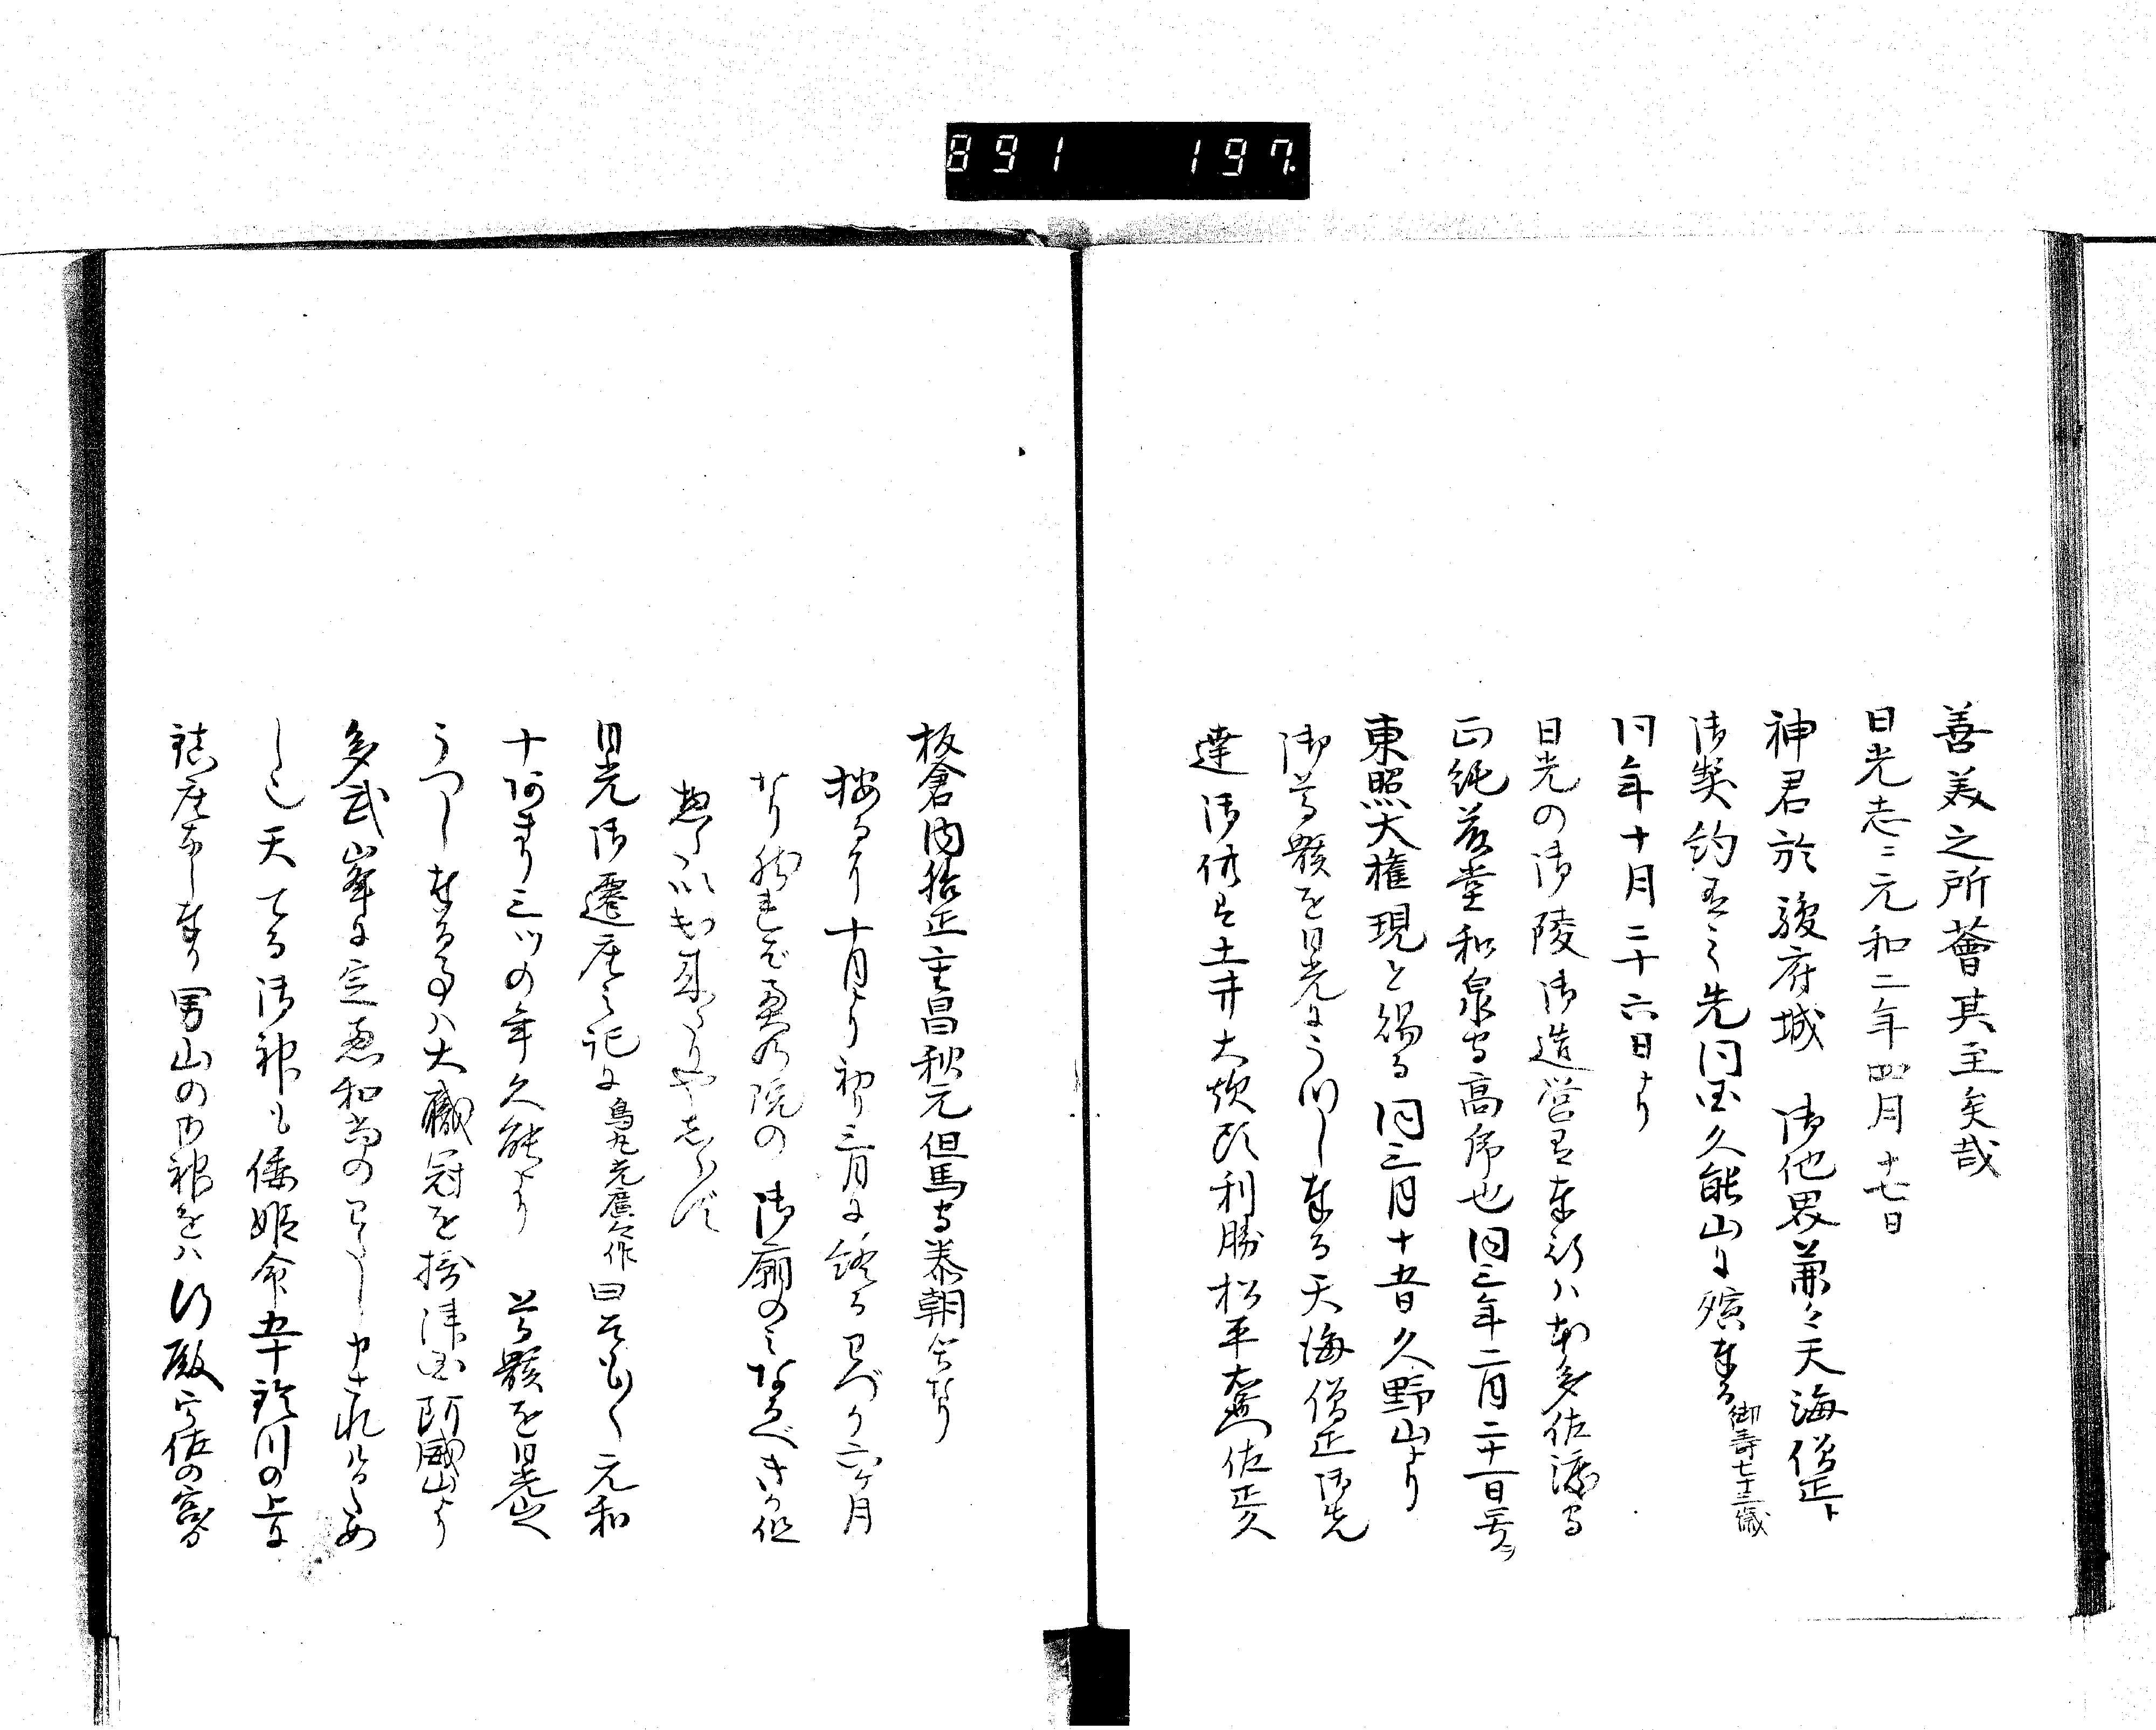 891 197
善美之所薈其至矣哉
日光志ニ元和二年四月十七日
神君於駿府城 御他界兼々天海僧正ト
御契約有之先同国久能山に殯奉る御寿七十五歳
同年十月二十六日より
日光の御陵御造営有奉行ハ本多佐渡守
正純藤堂和泉守高虎也同三年二月二十一日号ヲ
東照大権現と賜る同三月十五日久野山より
御尊骸を日光にうつし奉る天海僧正御先
達御供は土井大炊頭利勝松平右衛門佐正久
板倉内膳正重昌秋元但馬守泰朝等なり
按るに十月より初り三月に終るわづか六ケ月
なり然れば奥の院の 御廟のみなるべきか
惣而
日光御遷座之記に烏丸光広公作曰そもそも元和
十あまり三ツの年久能より 尊骸を日光山へ
うつし奉る事ハ大織冠を摂津国阿威山より
多武峯に定恵和尚のわたし申されけるため
しも天てる御神も倭姫命五十鈴川の上に
鎮座なし奉り男山の御神をハ行教宇佐の宮